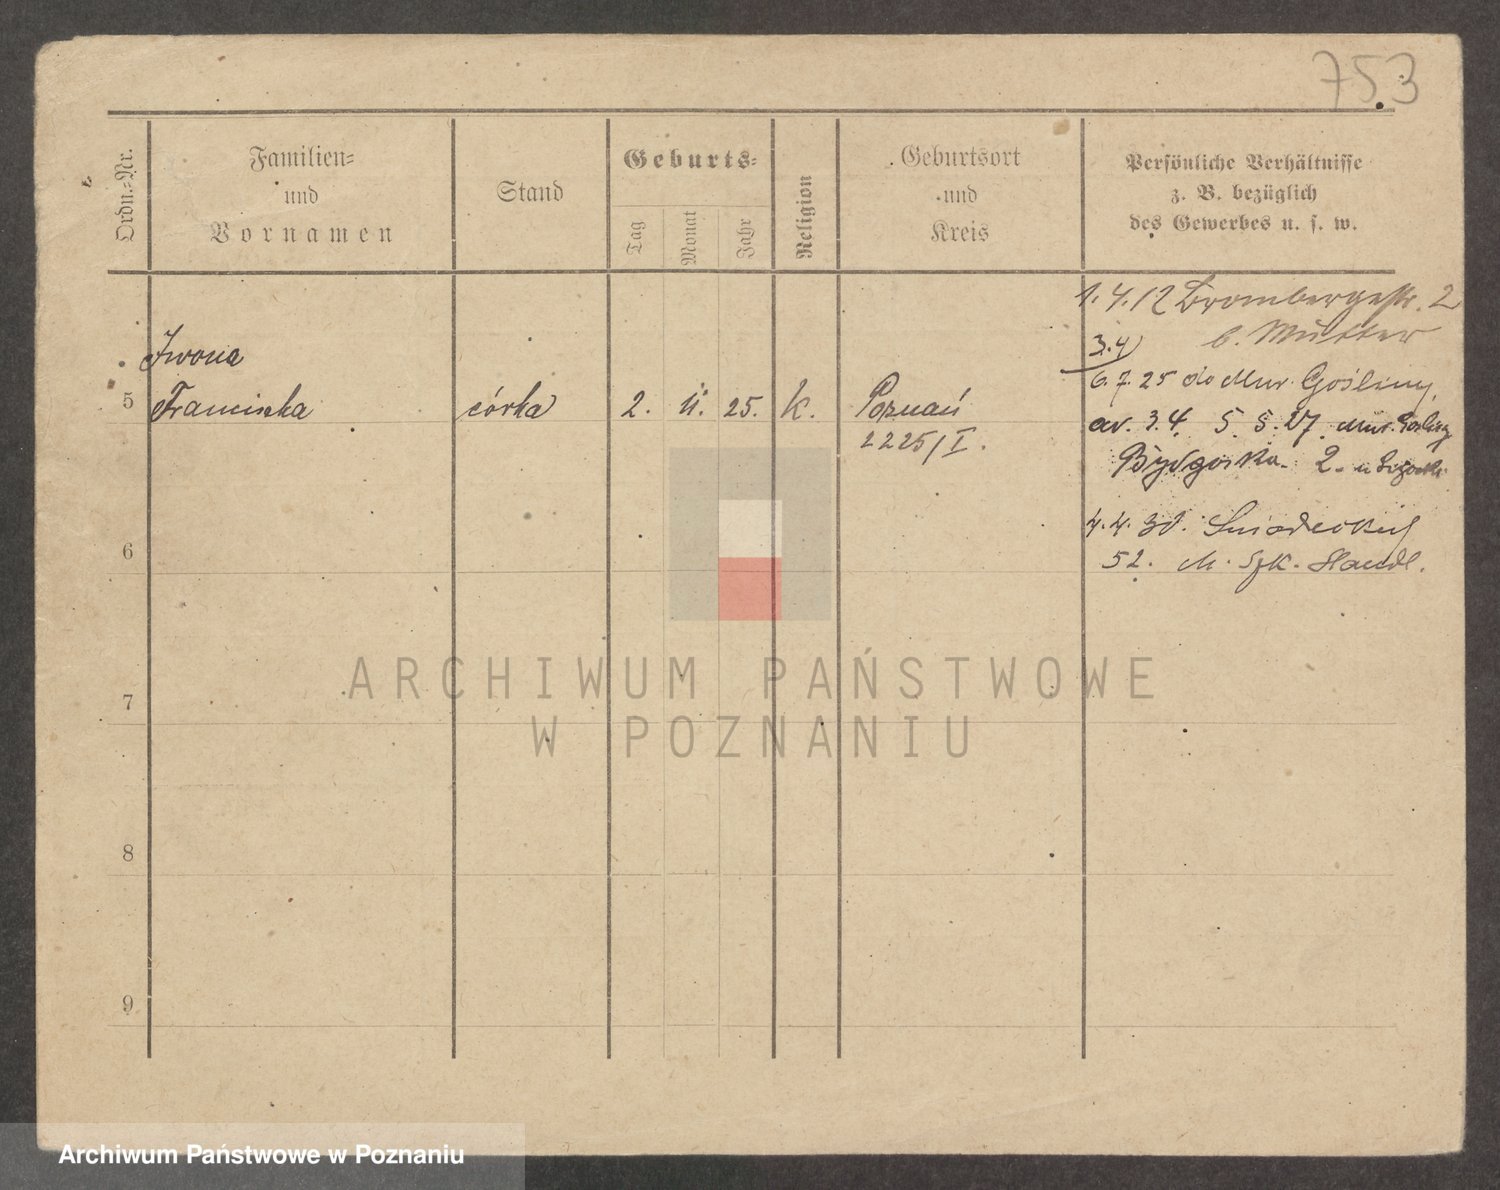 753
Ordn.-Nr.
Familien-
und
Vornamen
Stand
Geburts-
Tag
Monat
Jahr
Religion
Geburtsort
und
Kreis
Persönliche Verhältnisse
z. B. bezüglich
des Gewerbes u. s. w.
1.4.12 Brombergerstr. 2
b. Mutter
3.4
Iwona
5 Franciszka córka 2. 11. 25. k. Poznań
2225/I.
6.7.25 do Mur. Gośliny,
av. 3.4. 5.5.27. Mur. Gośliny
Bydgoska 2.
4.4.30. Śniadeckich
52. M. Szk. Handl.
6
7
8
9
ARCHIWUM PAŃSTWOWE
W POZNANIU
Archiwum Państwowe w Poznaniu